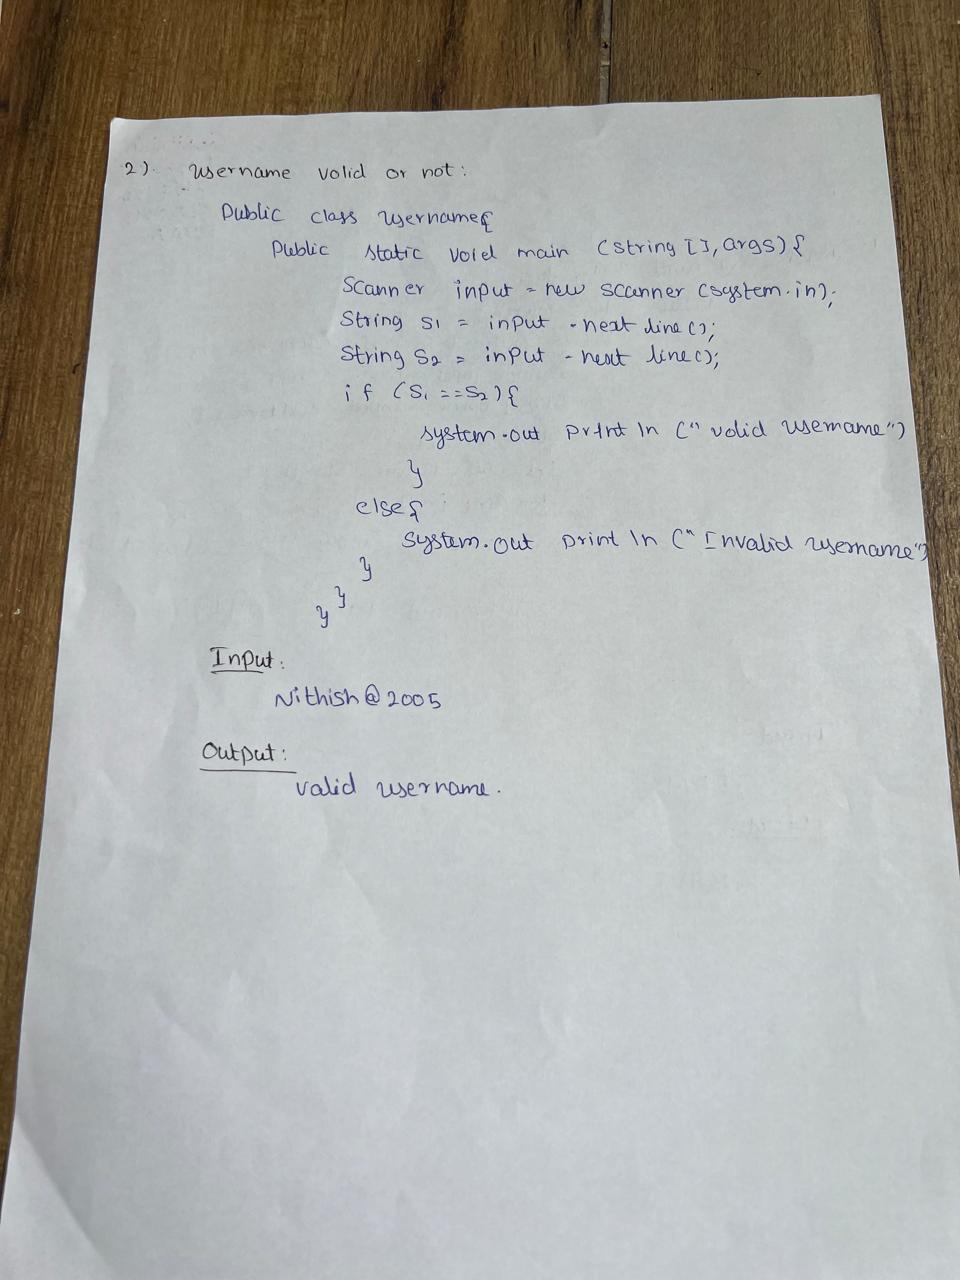 2). Username valid or not:
Public class Username{
Public static void main (string [], args) {
Scanner input = new scanner (system.in);
String S1 = input .next line ();
String S2 = input - next line ();
if (S1 == S2) {
system.out println ("valid username")
}
else{
System.out println ("Invalid username")
}
}
}
Input:
Nithish@2005
Output:
valid username.